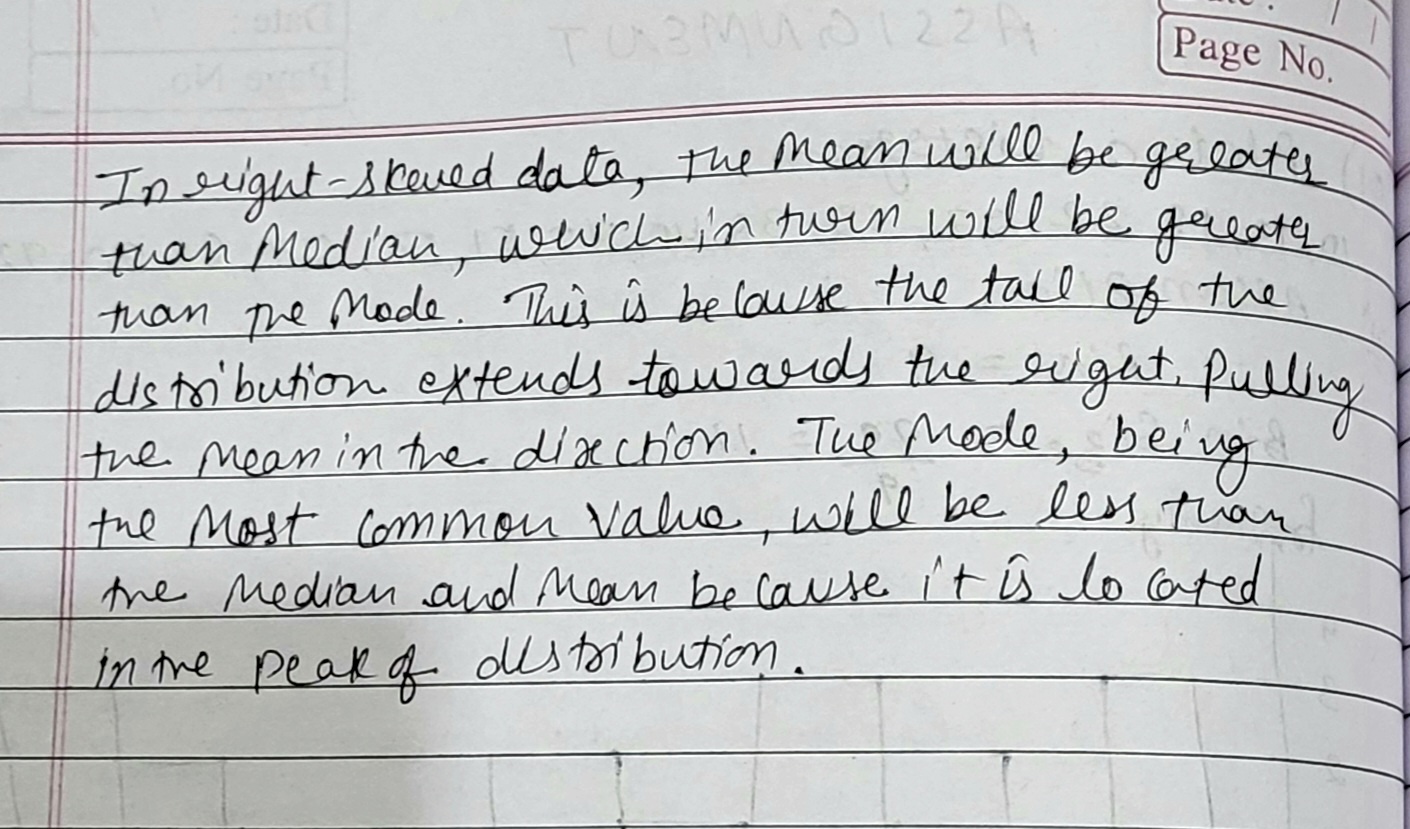 Page No.
In right-skewed data, the Mean will be greater
than Median, which in turn will be greater
than the Mode. This is because the tail of the
distribution extends towards the right, Pulling
the Mean in the direction. The Mode, being
the Most Common Value, will be less than
the Median and Mean because it is located
in the Peak of distribution.